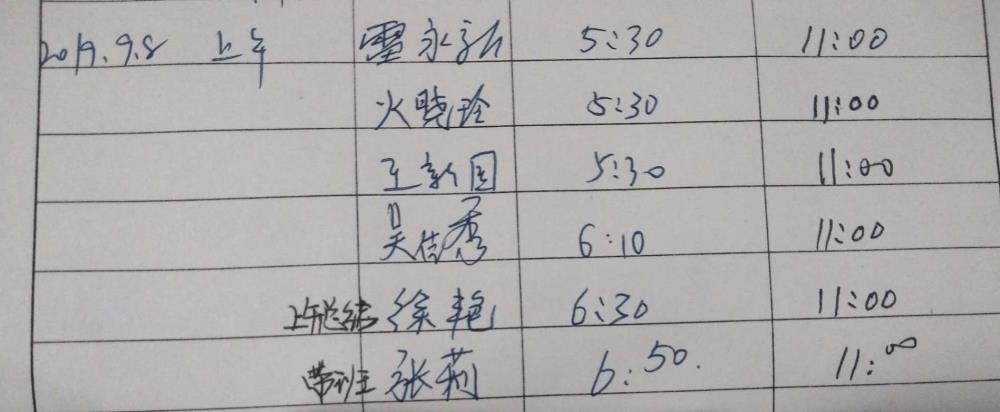 2019.9.8 上午 雷永弘 5:30 11:00
火晓玲 5:30 11:00
王新国 5:30 11:00
吴佳秀 6:10 11:00
上午总结 徐艳 6:30 11:00
带班 张莉 6:50. 11:00